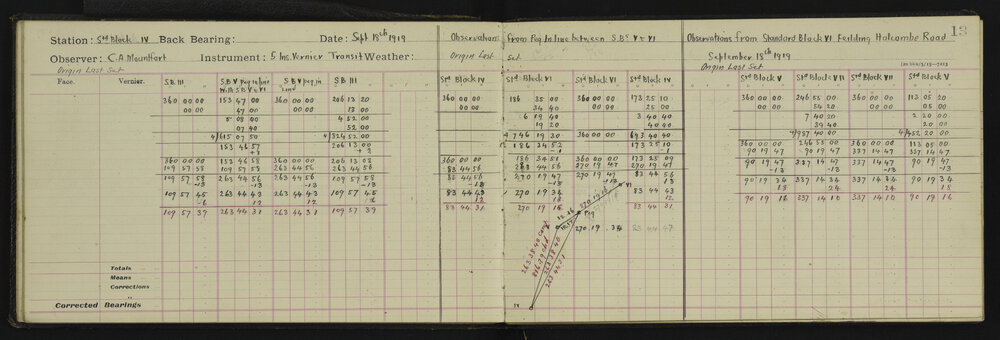 Station: Std Block IV Back Bearing: Date: Sept 13th 1919
Observer: C.A. Mountfort Instrument: 5 Ins. Vernier Transit Weather:
Origin Last Set
Face. Vernier. S.B. III S.B V Peg in line S.B V peg in S.B III
line
360 00 00 153 47 00 360 00 00 206 13 20
00 00 47 00 00 00 13 00
5 08 40 4 52 00
07 40 52 00
4/615 07 50 4/324 52 00
153 46 57 206 13 00
+1 +3
360 00 00 152 46 58 360 00 00 206 13 03
109 57 58 109 57 58 263 44 56 263 44 56
109 57 58 263 44 56 263 44 56 109 57 58
-13 -13 -13 -13
109 57 45 263 44 43 263 44 43 109 57 45
-6 12 12 -6
109 57 39 263 44 31 263 44 31 109 57 39
Totals
Means
Corrections
"
Corrected Bearings
Observations from Peg In line between S.Bs V & VI
Origin Last Set
Std Block IV Std Block VI Std Block VI Std Block IV
360 00 00 186 35 00 360 00 00 173 25 10
00 00 34 40 00 00 25 00
6 19 40 3 40 40
19 20 40 40
4 746 19 30 360 00 00 693 40 40
186 34 52 173 25 10
-1 -1
360 00 00 186 34 51 360 00 00 173 25 09
83 44 56 83 44 56 270 19 47 270 19 47
83 44 56 270 19 47 270 19 47 83 44 56
13 -13 -13 13
83 44 43 270 19 34 83 44 43
12 18 12
83 44 31 270 19 16 83 44 31
270 19 34 83 44 47
VI
V
Peg
270 19 16
263.38.40 comp.
263.38.40
263 44 31
IV
Observations from Standard Block VI Feilding Halcombe Road
13
September 13th 1919
Origin Last Set
Std Block V Std Block VII Std Block VII Std Block V
360 00 00 246 55 00 360 00 00 113 05 20
00 00 54 20 00 00 05 00
7 40 20 2 20 00
39 40 20 00
4/957 40 00 4/452 20 00
360 00 00 246 55 00 360 00 00 113 05 00
90 19 47 90 19 47 337 14 47 337 14 47
90 19 47 337 14 47 337 14 47 90 19 47
-13 -13 -13 -13
90 19 34 337 14 34 337 14 34 90 19 34
18 24 24 18
90 19 16 337 14 10 337 14 10 90 19 16